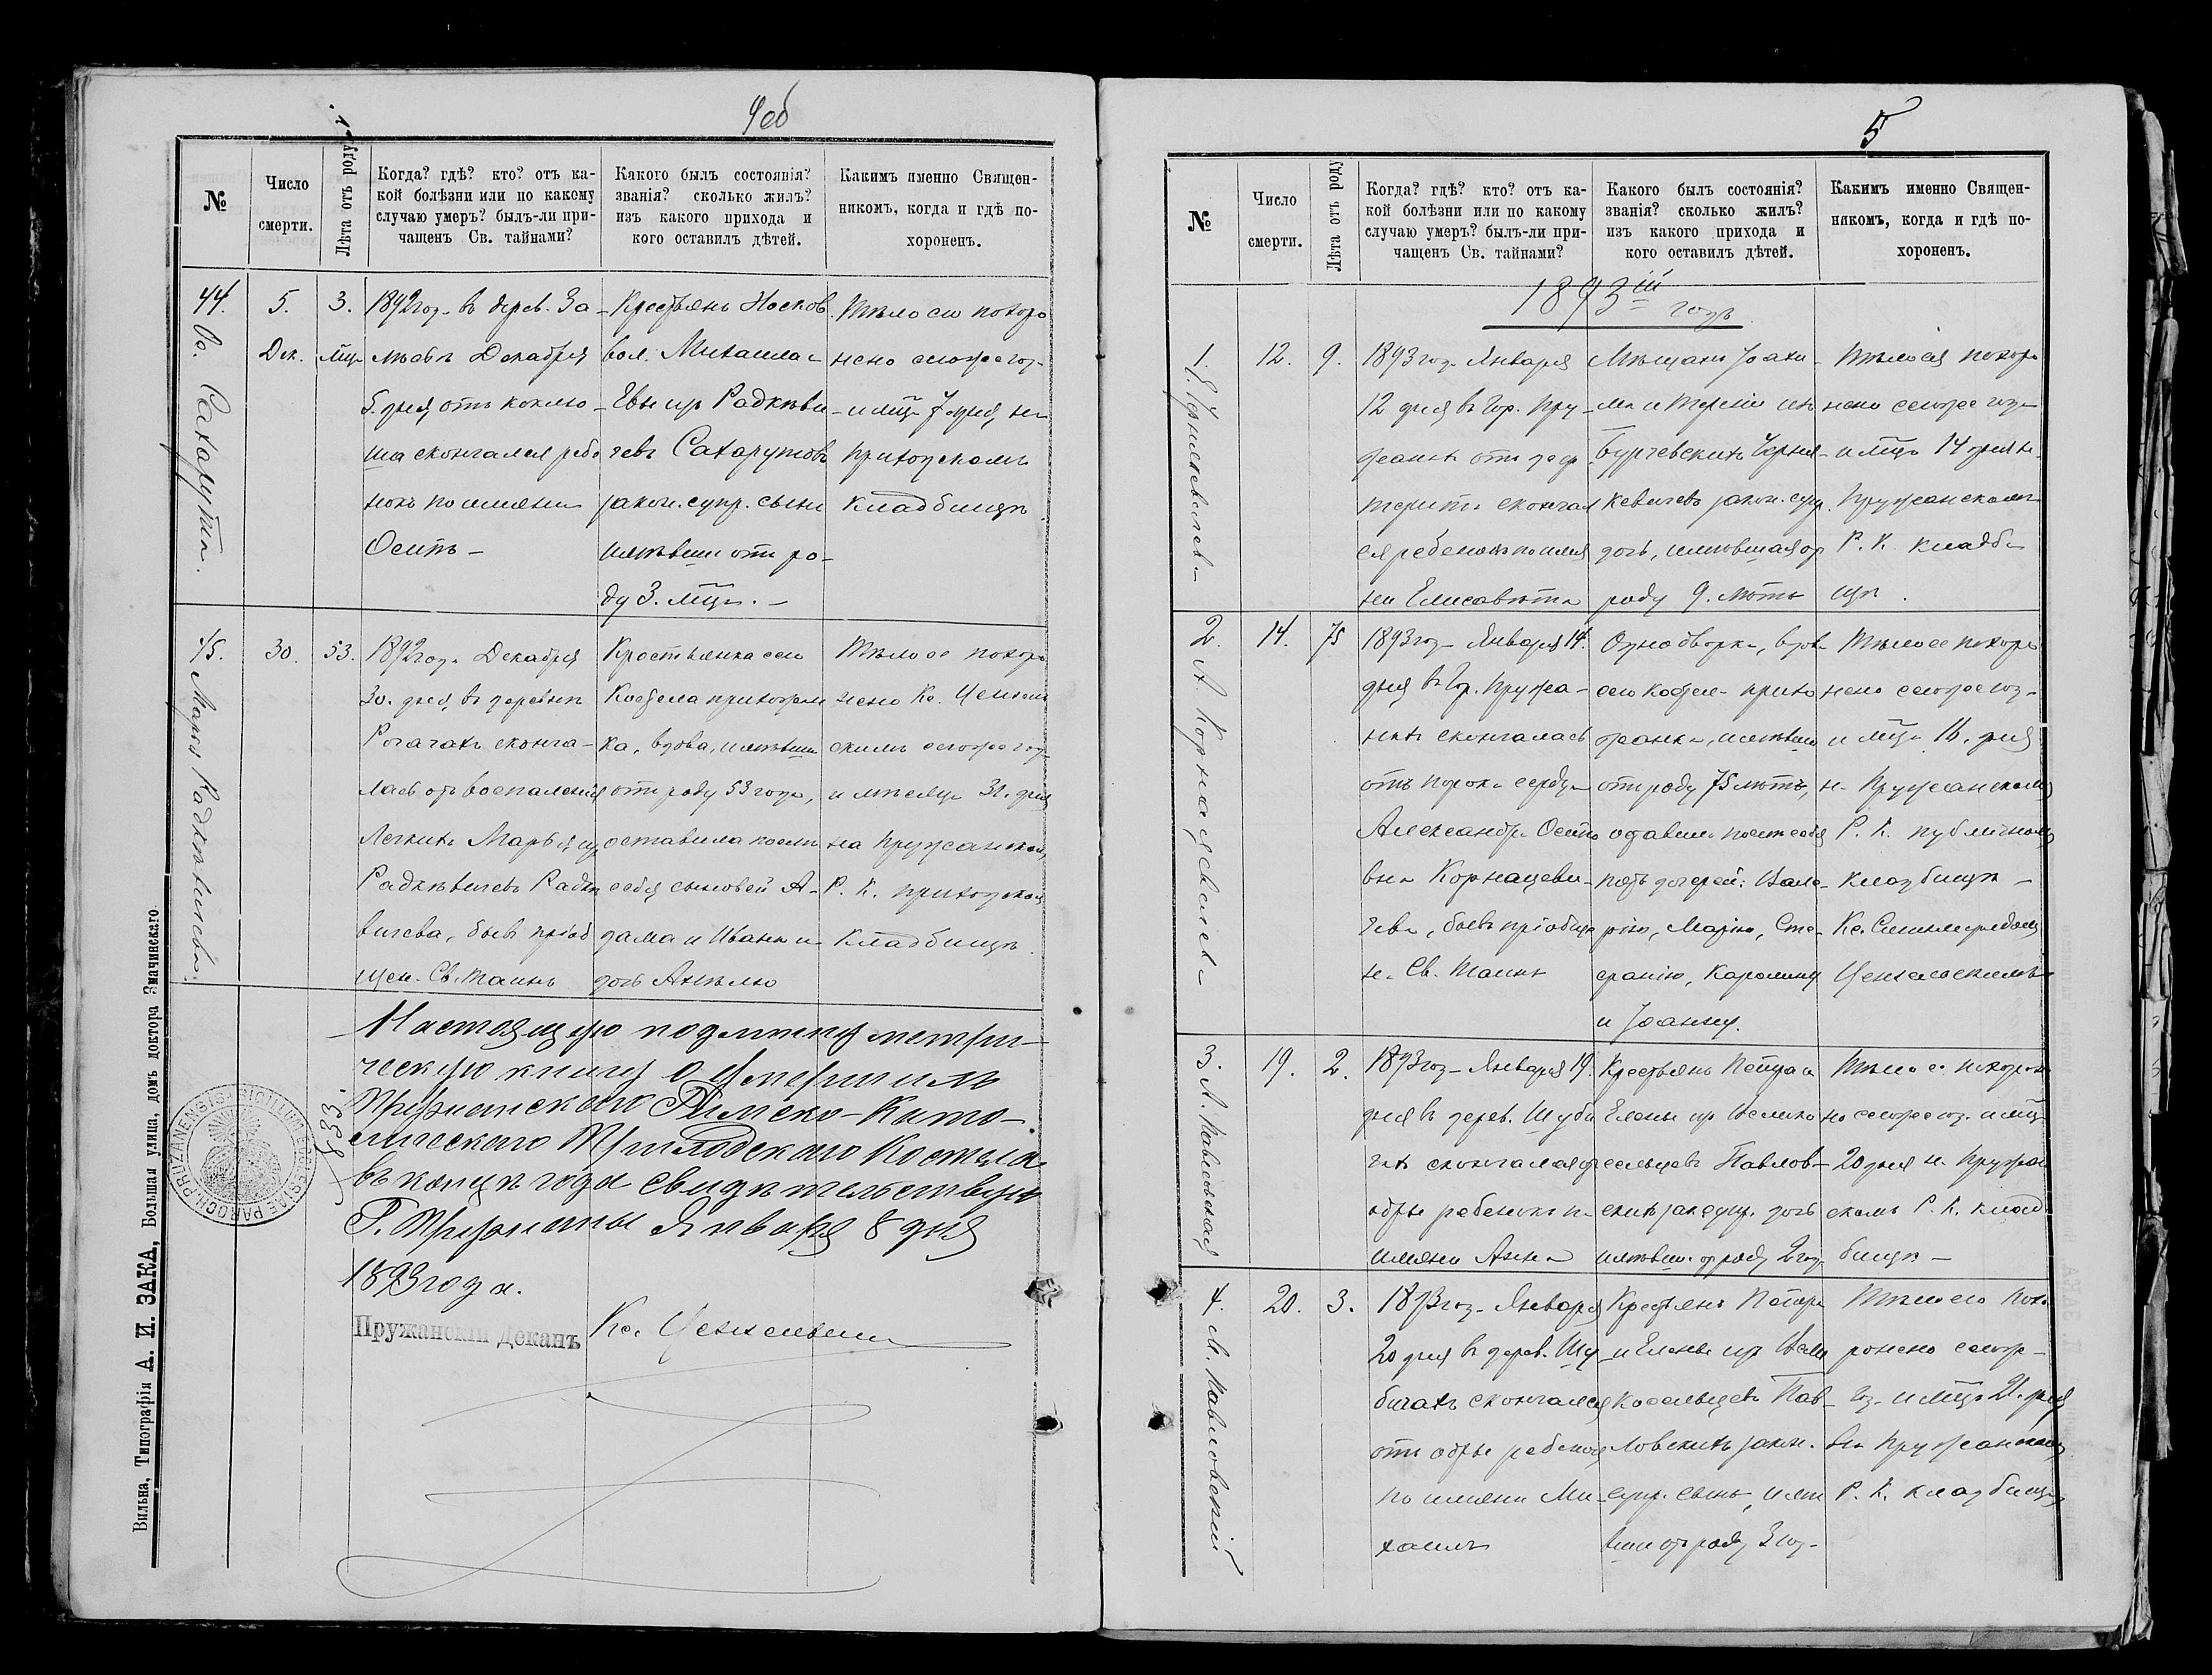 4об
№
Число
смерти.
Лѣта отъ роду.
Когда? гдѣ? кто? отъ ка-
кой болѣзни или по какому
случаю умеръ? былъ-ли при-
чащенъ Св. тайнами?
Какого былъ состоянія?
званія? сколько жилъ?
изъ какого прихода и
кого оставилъ дѣтей.
Какимъ именно Священ-
никомъ, когда и гдѣ по-
хороненъ.
44.
Сахарута.
5.
Дек.
3.
мѣц.
1892 год. въ дерев. За-
Декабря
5. дня отъ коклю-
ша скончался ребе
нокъ по имени
Осипъ –
Крестьянъ Носков.
вол. Михаила и
Евы изъ Радкеви-
чевъ Сахарутовъ
закон. супр. сынъ
имѣвши отъ ро-
ду 3. мѣц. –
Тѣло его похоро
нено сего же год.
и мѣц. 7 дня на
приходскомъ
кладбищѣ.
45.
Марья Радкевичева.
30.
53.
1892 года Декабря
30. дня въ деревнѣ
Рогачахъ сконча-
лась отъ воспаленія
легкихъ Марья изъ
Радкевичевъ Радке
вичева, бывъ пріоб
щен. Св. Таинъ
Крестьянка сего
Костела прихожан
ка, вдова, имѣвши
отъ роду 53 года,
оставила послѣ
себя сыновей А-
дама и Ивана и
дочь Анелю
Тѣло ее похоро
нено Кс. Ценкел
скимъ сего же год
и мѣсяца 31. дня
на Пружанском
Р. К. приходском
кладбищѣ.
Настоящую подлинную метри-
ческую книгу о умершихъ
Пружанскаго Римско-Като-
лическаго Приходскаго Костела
въ концѣ года свидѣтельствую
Г. Пружаны Января 8 дня
1893 года.
№ 33.
Пружанскій Деканъ Кс.
Вильна, Типографія А. И. ЗАКА, Большая улица, домъ доктора Змачинскаго.
5
№
Число
смерти.
Лѣта отъ роду
Когда? гдѣ? кто? отъ ка-
кой болѣзни или по какому
случаю умеръ? былъ-ли при-
чащенъ Св. тайнами?
Какого былъ состоянія?
званія? сколько жилъ?
изъ какого прихода и
кого оставилъ дѣтей.
Какимъ именно Священ-
никомъ, когда и гдѣ по-
хороненъ.
1893ій годъ
1.
12.
9.
1893 год. Января
12 дня въ Гор. Пру-
жанахъ отъ диф
терита скончал
ся ребенокъ по име
ни Елисавета
Мѣщанъ Іоахи-
ма и Терезіи изъ
закон. супр.
дочь, имѣвшая от
роду 9. лѣтъ
Тѣло ея похоро
нено сего же года
и мѣц. 14 дня на
Пружанскомъ
Р. К. кладби
щѣ.
2.
А. Корнацевичева
14.
75
1893 год. Января 14.
дня въ Гор. Пружа-
нахъ скончалась
отъ порока сердца
Александра Осипо
вна Корнацеви-
чева, бывъ пріобще
на Св. Таинъ
Однодворка, вдова
сего костела прихо
жанка, имѣвши
отъ роду 75 лѣтъ,
оставила послѣ себя
пять дочерей: Вале-
рію, Марію, Сте-
фанію, Каролину
и Іоанну.
Тѣло ее похоро
нено сего же год.
и мѣц. 16. дня
на Пружанскомъ
Р. К. публичномъ
кладбищѣ –
Кс.
3.
А. Павловская
19.
2.
1893 год. Января 19.
дня въ дерев. Шуби
чахъ скончалась от
оспы ребенокъ по
имени Анна
Крестьянъ Петра и
Елены изъ Велико
сельцевъ Павлов-
скихъ зак. супр. дочь
имѣвш. от роду 2 год.
Тѣло ее похороне
но сего же год. и мѣц.
20 дня на Пружан
скомъ Р. К. клад
бищѣ –
4.
М. Павловскій
20.
3.
1893 год. Января
20 дня въ дерев. Шу-
бичахъ скончался
отъ оспы ребенок
по имени Ми-
хаилъ
Крестьянъ Петра
и Елены изъ Вели
косельцевъ Пав-
ловскихъ закон.
супр. сынъ, имѣ
вши отъ роду 3 год.
Тѣло его похо
ронено сего же
год. и мѣц. 21. дня
на Пружанскомъ
Р. К. кладбищѣ